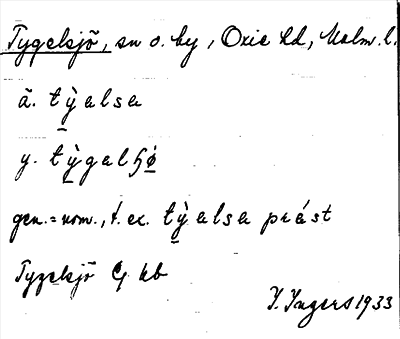 Tygelsjö, sn o. by, Oxie hd, Malm. l.
ä. tỳ̠alsa
y. tỳ̠galɧǿ̠
gen. = nom., t. ex. tỳ̠alsa prást
Tygelsjö kb
I. Ingers 1933